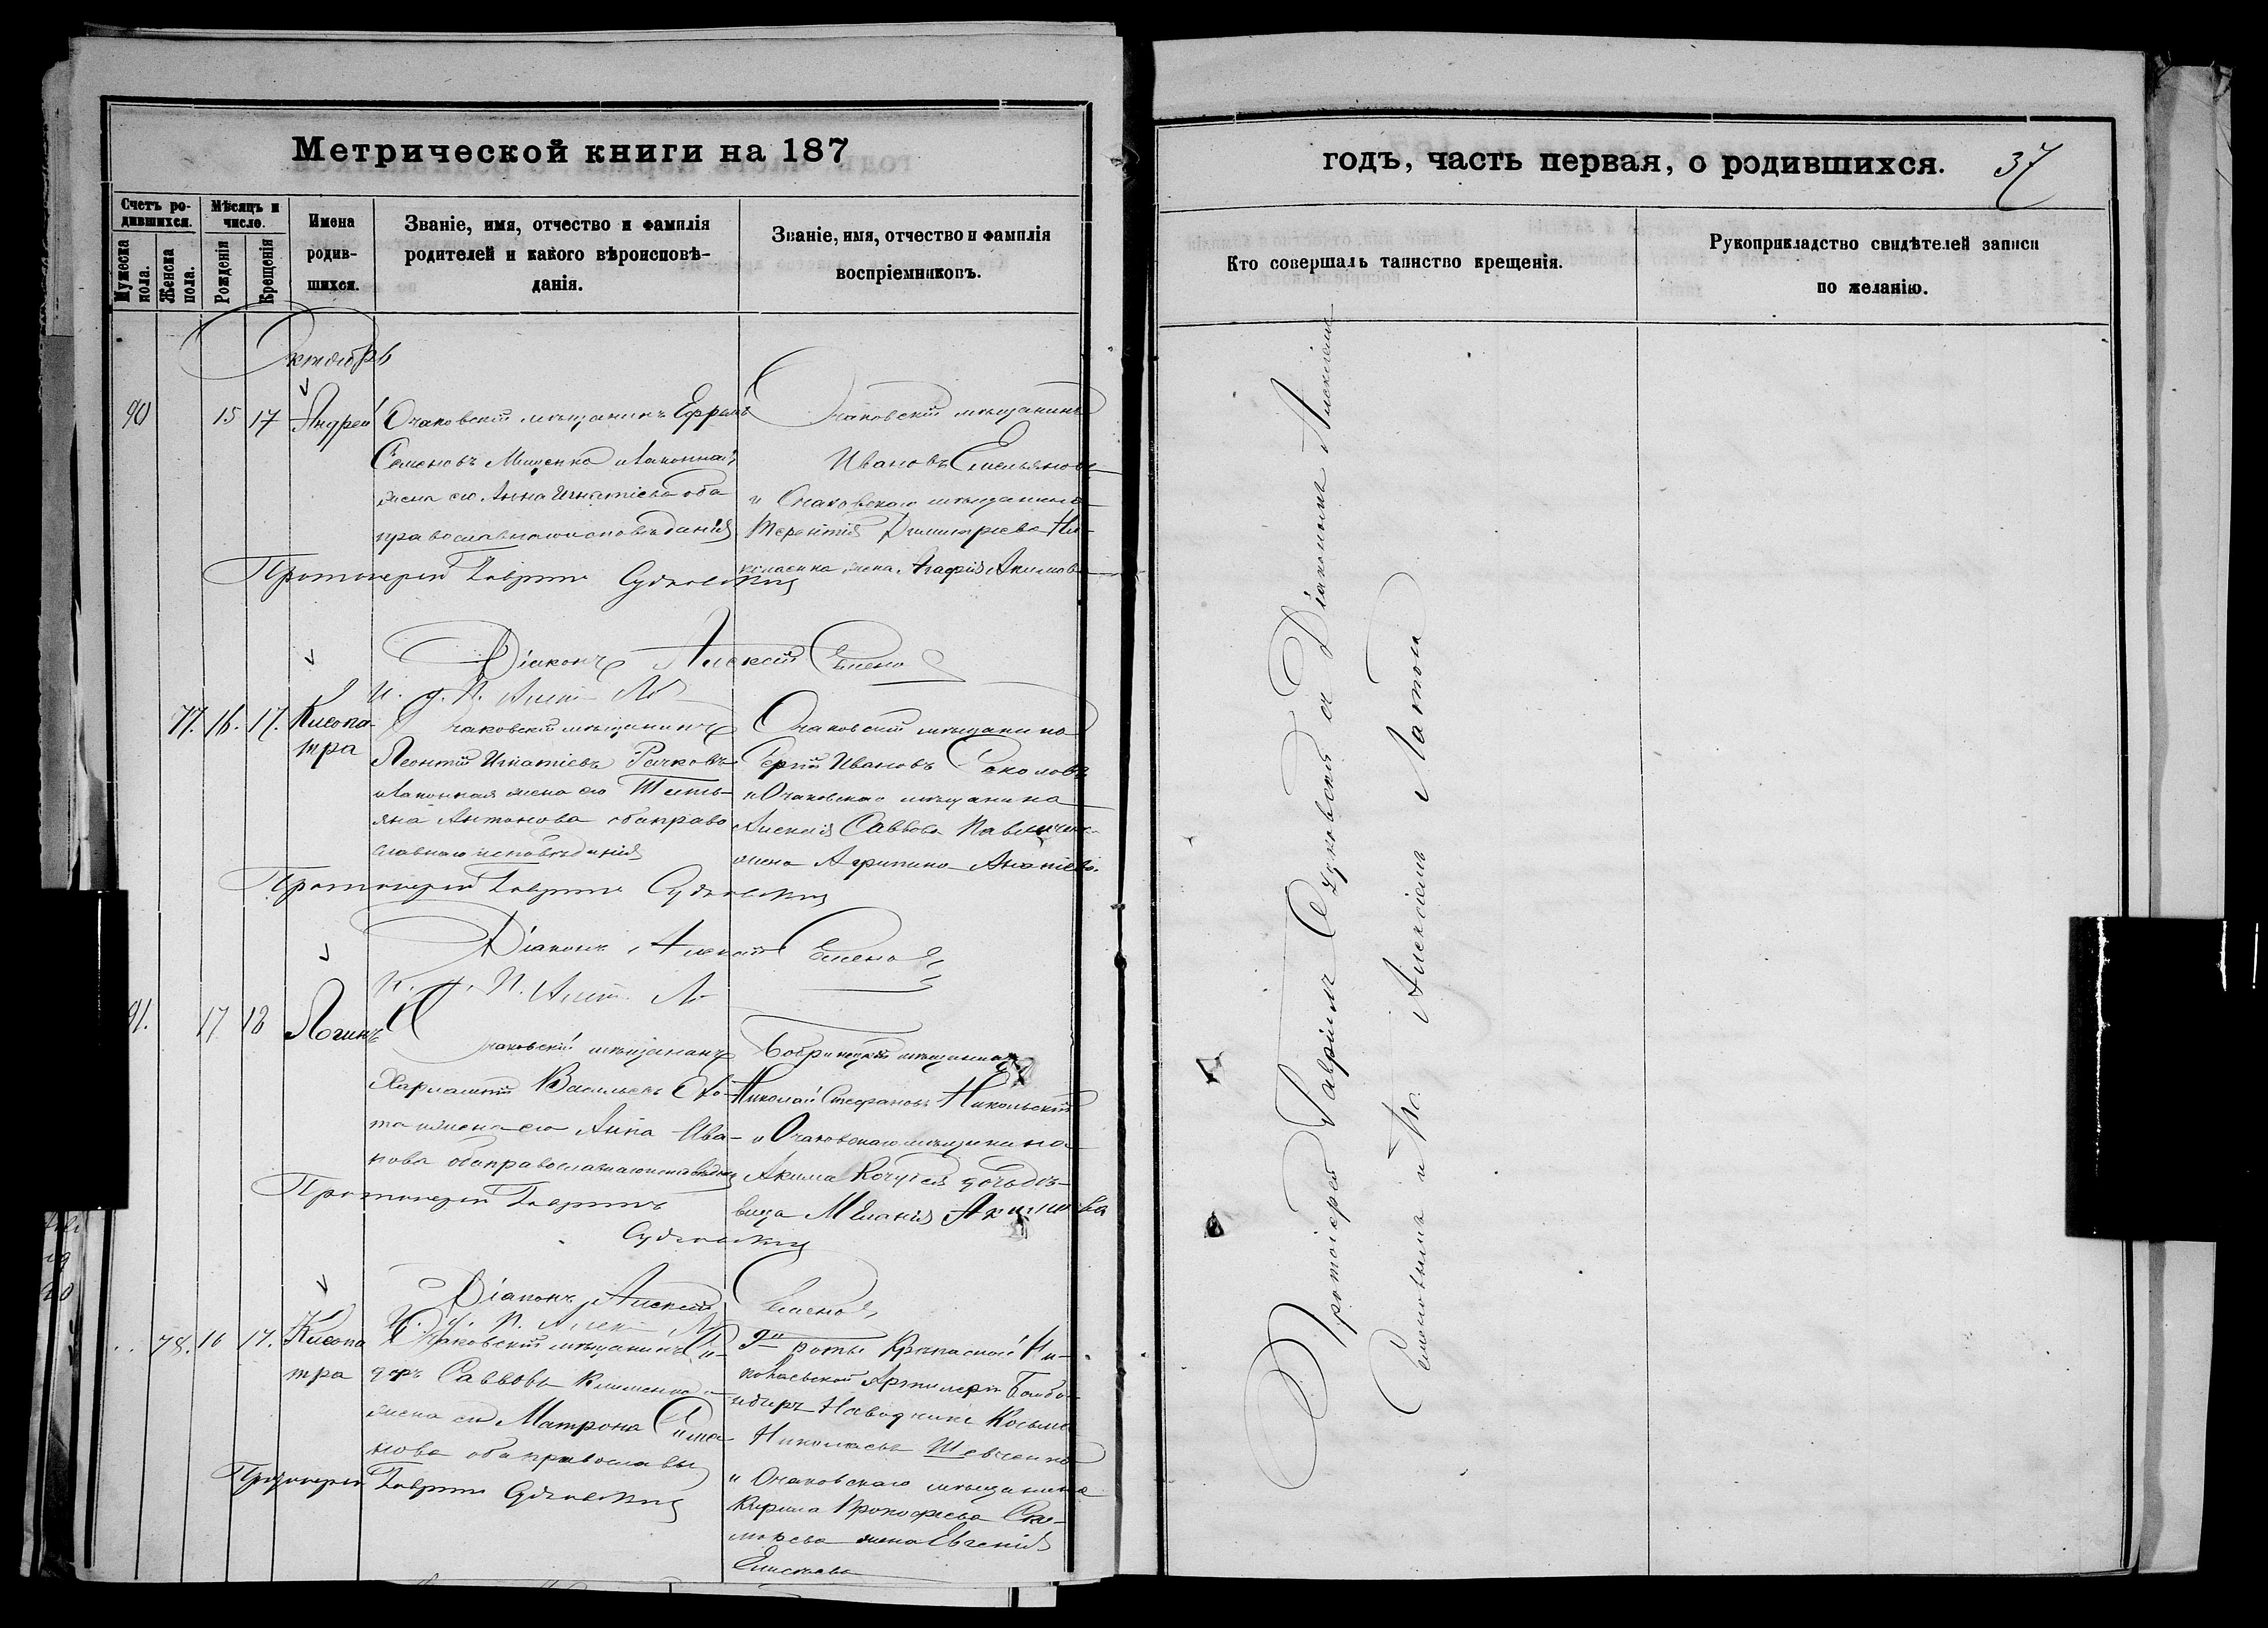 Метрической книги на 187
Счетъ ро-
дившихся.
Мужеска
пола.
Женска
пола.
Мѣсяцъ и
число.
Рожденія
Крещенія
Имена
родив-
шихся.
Званіе, имя, отчество и фамилія
родителей и какого вѣроисповѣ-
данія.
Званіе, имя, отчество и фамилія
воспріемниковъ.
Октябрь
90 15 17 Андрей
Очаковскій мѣщанинъ
Семеновъ Мищенко и законная
жена его Анна Игнатіева оба
православнаго исповѣданія
Очаковскій мѣщанинъ
Ивановъ Емельянов
и Очаковскаго мѣщанина
Терентія Димитріева Ни-
жена Агафія Акимова
Протоіерей Гавріилъ Судковскій
Діаконъ Алексій
77. 16. 17. Клеопа-
тра
Очаковскій мѣщанинъ
Леонтій Игнатіевъ Рачковъ
и законная жена его Тать-
яна Антонова оба право
славнаго исповѣданія
Очаковскій мѣщанинъ
Сергій Ивановъ Соколовъ
и Очаковскаго мѣщанина
Алексія Саввова
жена Агрипина Ананіева.
Протоіерей Гавріилъ Судковскій
Діаконъ Алексій
91. 17 18 Логинъ
Очаковскій мѣщанинъ
Харлампій Васильевъ
та и жена его Анна Ива-
нова оба православнаго исповѣданія
Бобринецкій мѣщанинъ
Николай Стефановъ Никольскій
и Очаковскаго мѣщанина
Акима Кочубея дочь дѣ-
вица Меланія Акимова
Протоіерей Гавріилъ
Судковскій
Діаконъ Алексій
78. 16 17. Клеопа
тра
Очаковскій мѣщанинъ
Саввовъ Клименко и
жена его Матрона Сима-
нова оба православны
роты Крѣпасной Ни-
колаевской Артилеріи Бомбо-
ндиръ Наводчикъ Козьма
Николаевъ Шевченко
и Очаковскаго мѣщанина
Кирила Прокофіева
жена Евгенія
Елисеева
Протоіерей Гавріилъ Судковскій
годъ, часть первая, о родившихся. 37
Кто совершалъ таинство крещенія.
Рукоприкладство свидѣтелей записи
по желанію.
Протоіерей Гавріилъ Судковскій съ Діакономъ Алексіемъ
Алексіемъ